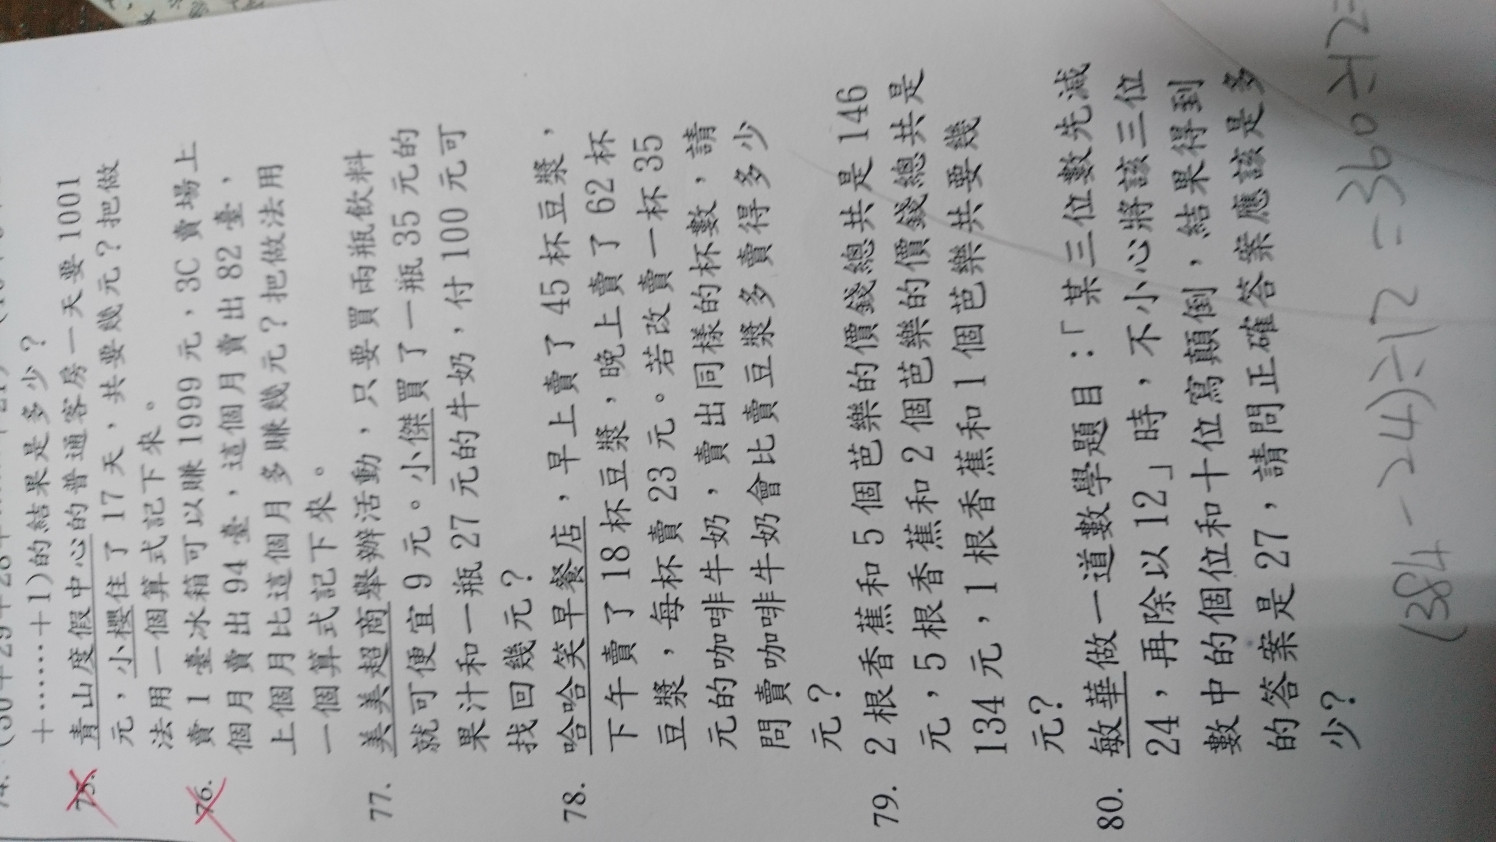 +……+1)的結果是多少?
75. 青山度假中心的普通客房一天要 1001
元,小櫻住了 17 天,共要幾元?把做
法用一個算式記下來。
76. 賣 1 臺冰箱可以賺 1999 元,3C 賣場上
個月賣出 94 臺,這個月賣出 82 臺,
上個月比這個月多賺幾元?把做法用
一個算式記下來。
77. 美美超商舉辦活動,只要買兩瓶飲料
就可便宜 9 元。小傑買了一瓶 35 元的
果汁和一瓶 27 元的牛奶,付 100 元可
找回幾元?
78. 哈哈笑早餐店,早上賣了 45 杯豆漿,
下午賣了 18 杯豆漿,晚上賣了 62 杯
豆漿,每杯賣 23 元。若改賣一杯 35
元的咖啡牛奶,賣出同樣的杯數,請
問賣咖啡牛奶會比賣豆漿多賣得多少
元?
79. 2 根香蕉和 5 個芭樂的價錢總共是 146
元,5 根香蕉和 2 個芭樂的價錢總共是
134 元,1 根香蕉和 1 個芭樂共要幾
元?
80. 敏華做一道數學題目:「某三位數先減
24,再除以 12」時,不小心將該三位
數中的個位和十位寫顛倒,結果得到
的答案是 27,請問正確答案應該是多
少?
(384-24)÷12=360÷12=